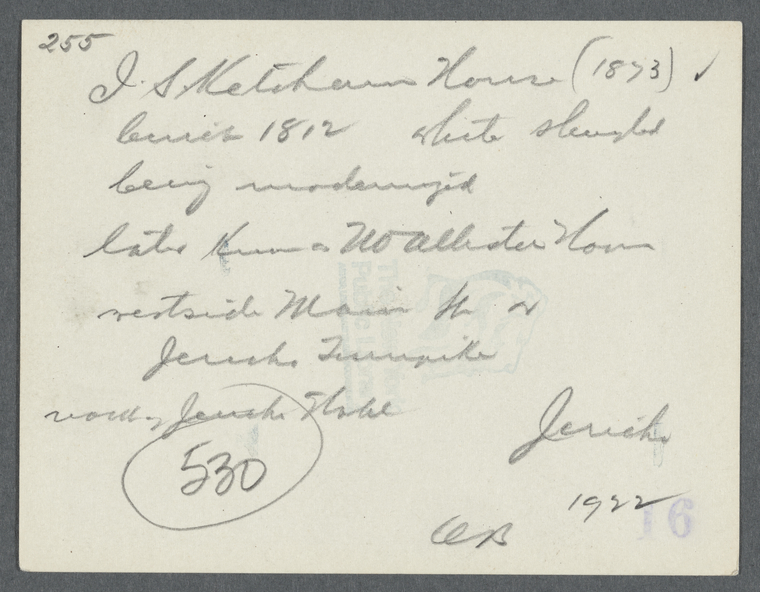 255
I. S. Ketcham House (1873) ✓
built 1812 white shingled
being modernized
later known as McAllister House
westside Main St. or
Jericho Turnpike
north of Jericho Hotel
530
Jericho
1922
16